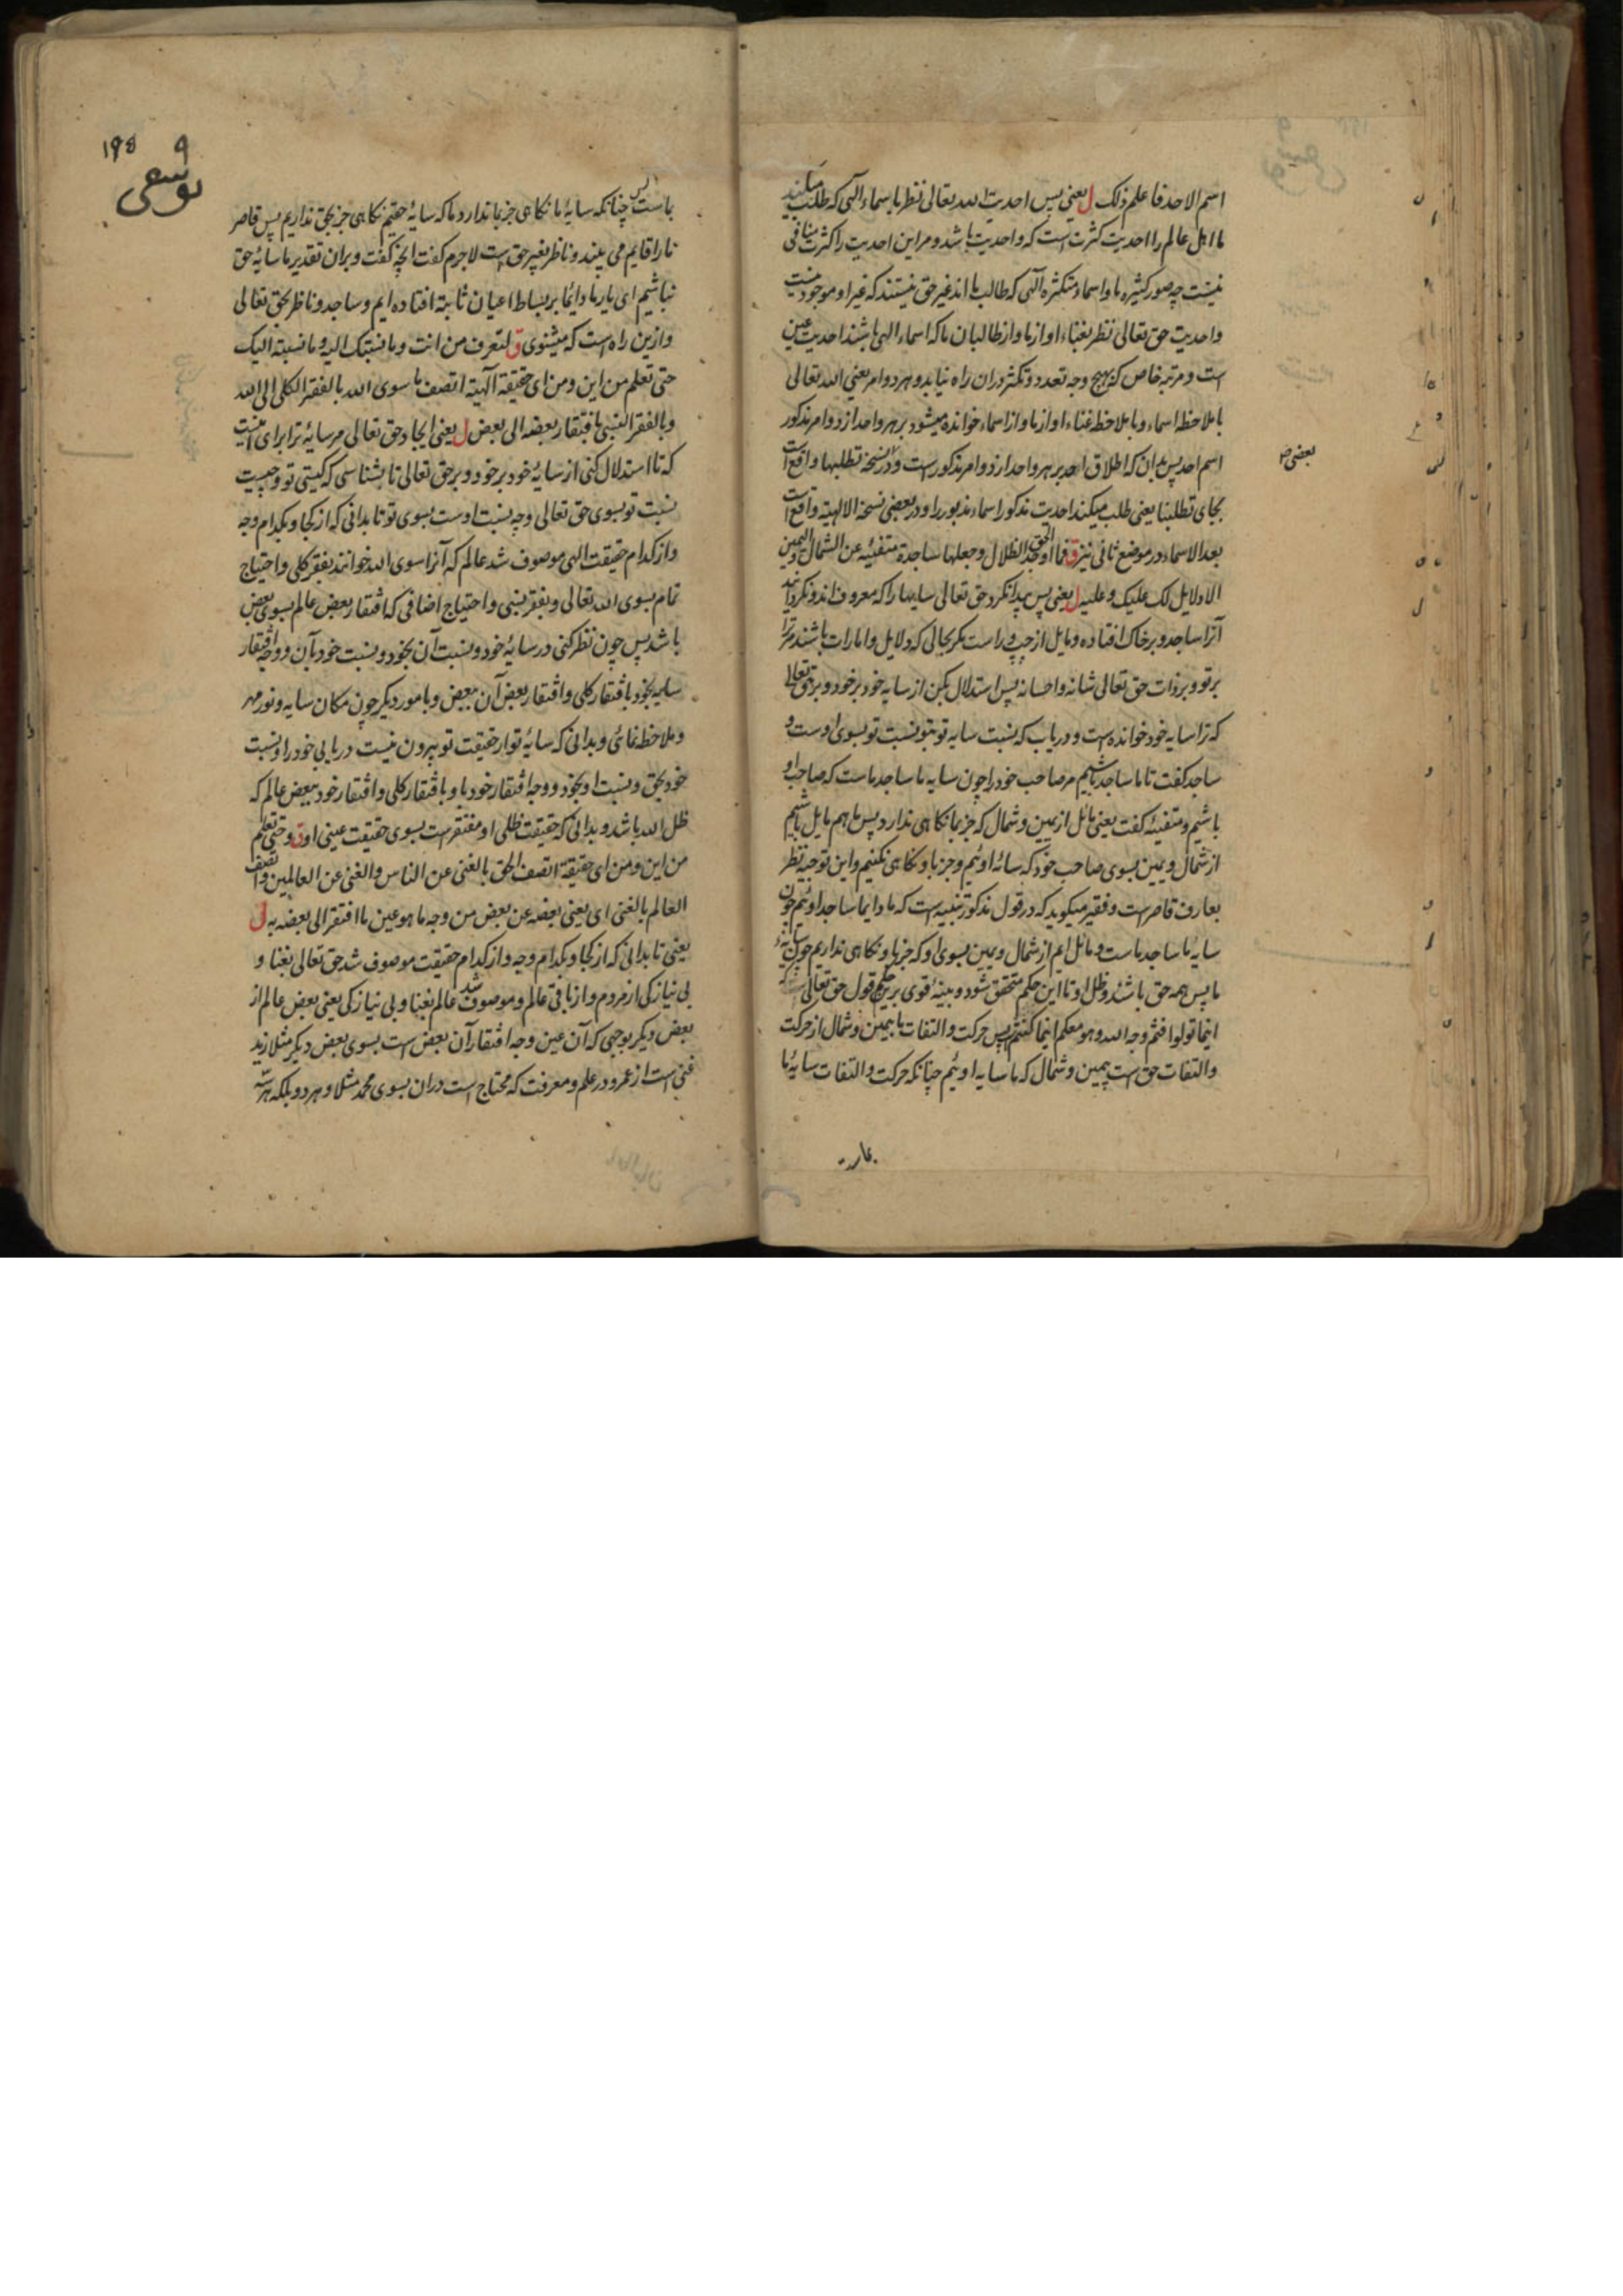 اسم الاحد فاعلم ذلک ل یعنی پس احدیت الله تعالی نظر باسماء الهی که طلب میکنند
ما اهل عالم را احدیت کثرت است که واحدیت باشد و مر این احدیت را کثرت منافی
نیست چه صور کثیره ما و اسماء متکثره الهی که طالب ما اند غیر حق نیستند که غیر او موجود نیست
و احدیت حق تعالی نظر بغناء او از ما و از طالبان ما که اسماء الهی باشند احدیت عین
است و مرتبه خاص که بهیچ وجه تعدد و تکثر در ان راه نیابد و هر دو امر یعنی الله تعالی
با ملاحظه اسماء و با ملاحظه غناء او از ما و از اسماء خوانده میشود بر هر واحد از دو امر مذکور
اسم احد پس بدان که اطلاق احد بر هر واحد از دو امر مذکور است و در نسخه تطلبها واقع است
بعضی
بجای تطلبنا یعنی طلب میکند احدیت مذکور اسماء مذبور را و در بعضی نسخه الالهیة واقع است
بعد الاسماء در موضع ثانی نیز ق فما اوجد الحق الظلال و جعلها ساجدة متفیئه عن الشمال و الیمین
الا دلایل لک علیک و علیه ل یعنی پس پیدا نکرد حق تعالی سایها را که معروف اند و نکردانید
آنرا ساجد و بر خاک افتاده و مایل از چپ و راست مکر بحالی که دلایل و امارات باشند مر ترا
بر تو و بر ذات حق تعالی شانه و احسانه پس استدلال بکن از سایه خود بر خود و بر حق تعالی
که ترا سایه خود خوانده است و دریاب که نسبت سایه تو بتو نسبت تو بسوی اوست و
ساجد کفت تا ما ساجد باشیم مر صاحب خود را چون سایه ما ساجد ماست که صاحب او
باشیم و متفیئه کفت یعنی مائل از یمین و شمال که جز بما نکاهی ندارد پس ما هم مایل باشیم
از شمال و یمین بسوی صاحب خود که سائه اوئیم و جز باو نکاهی نکنیم و این توجیه نظر
بعارف قاصر است و فقیر میکوید که در قول مذکور تنبیه است که ما دایما ساجد اوئیم چون
سایه ما ساجد ماست و مائل ایم از شمال و یمین بسوی او که جز باو نکاهی نداریم چون سایهٔ
ما پس همه حق باشد و ظل او تا این حکم متحقق شود و بینهٔ قوی برین حکم قول حق تعالی است که
اینما تولوا فثم وجه الله و هو معکم اینما کنتم پس حرکت و التفات ما بیمین و شمال از حرکت
و التفات حق است بیمین و شمال که ما سایه اوئیم چنانکه حرکت و التفات سایهٔ ما
۱۹۵
یوسفی
ماست پس چنانکه سایهٔ ما نکاهی جز بما ندارد ما که سایهٔ حقیم نکاهی جز بحق نداریم پس قاصر
ما را قایم می بیند و ناظر بغیر حق است لاجرم کفت انچه کفت و بران تقدیر ما سایهٔ حق
نباشیم ای یار ما دائما بر بساط اعیان ثابته افتاده ایم و ساجد و ناظر بحق تعالی
و ازین راه است که میشنوی ق لتعرف من انت و ما نسبتک الیه و ما نسبته الیک
حتی تعلم من این و من ای حقیقة الهیة اتصف ما سوی الله بالفقر الکلی الی الله
و بالفقر النسبی بافتقار بعضه الی بعض ل یعنی ایجاد حق تعالی مر سایهٔ ترا برای اینست
که تا استدلال کنی از سایهٔ خود بر خود و بر حق تعالی تا بشناسی که کیستی تو و چیست
نسبت تو بسوی حق تعالی و چه نسبت اوست بسوی تو تا بدانی که از کجا و بکدام وجه
و از کدام حقیقت الهی موصوف شد عالم که آنرا سوی الله خوانند بفقر کلی و احتیاج
تمام بسوی الله تعالی و بفقر نسبی و احتیاج اضافی که افتقار بعض عالم بسوی بعض
باشد پس چون نظر کنی در سایهٔ خود و نسبت آن بخود و نسبت خود بآن و وجه افتقار
سایه بخود بافتقار کلی و افتقار بعض آن ببعض و بامور دیکر چون مکان سایه و نور مهر
و ملاحظه نمائی و بدانی که سایهٔ تو از حقیقت تو بیرون نیست دریابی خود را و نسبت
خود بحق و نسبت او بخود و وجه افتقار خود باو بافتقار کلی و افتقار خود ببعض عالم که
ظل الله باشد و بدانی که حقیقت ظلی او مفتقر است بسوی حقیقت عینی او ق و حتی تعلم
من این و من ای حقیقة اتصف الحق بالغنی عن الناس و الغنی عن العالمین و اتصف
العالم بالغنی ای یعنی بعضه عن بعض من وجه ما هو عین ما افتقر الی بعضه به ل
یعنی تا بدانی که از کجا و بکدام وجه و از کدام حقیقت موصوف شد حق تعالی بغنا و
بی نیازکی از مردم و از باقی عالم و موصوف شد عالم بغنا و بی نیازکی یعنی بعض عالم از
بعض دیکر بوجهی که آن عین وجه افتقار آن بعض است بسوی بعض دیکر مثلا زید
غنی است از عمرو در علم و معرفت که محتاج است دران بسوی محمد مثلا و هر دو بلکه هر